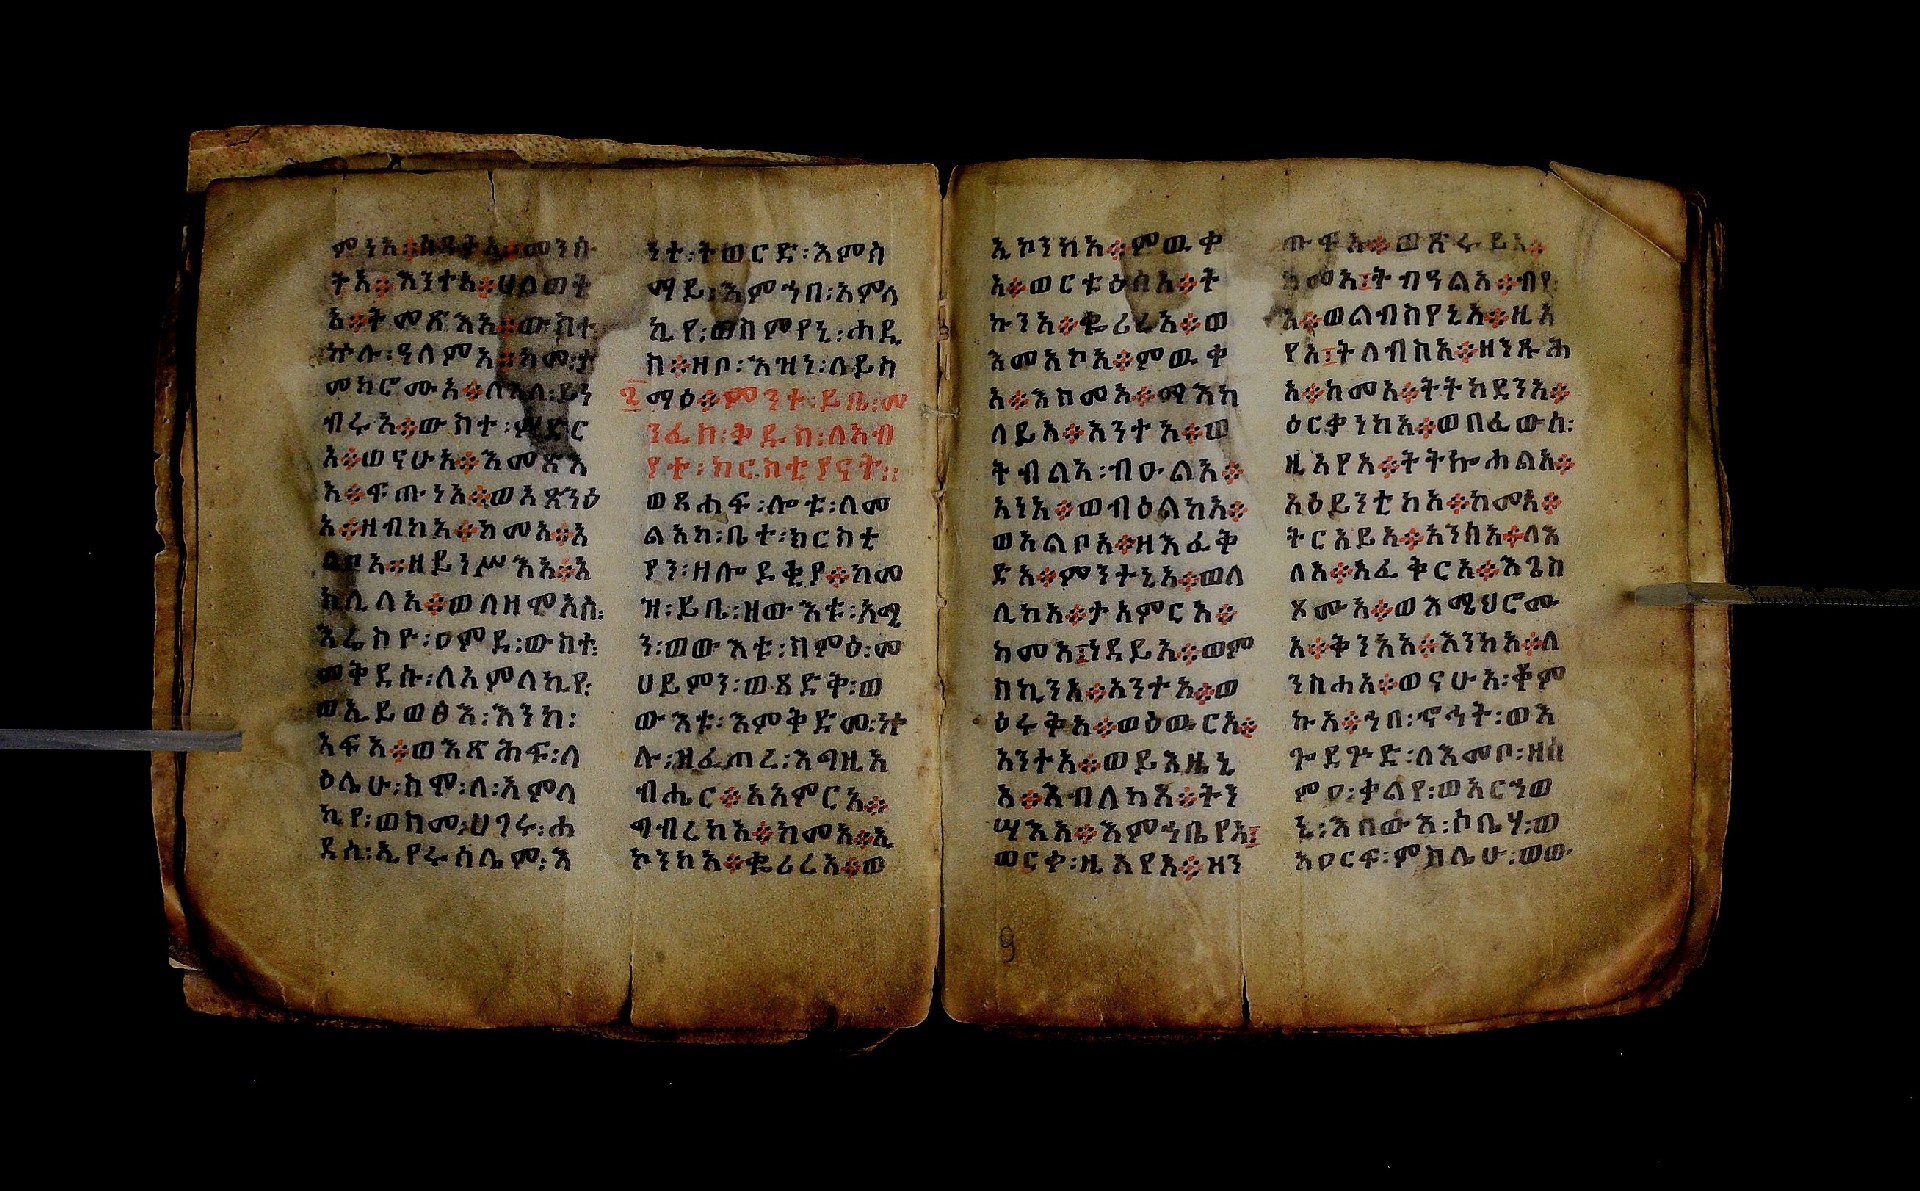 ምንአ፨ከዳቅአ፨መንሱ
ትአ፨እንተአ፨ሀለወት
አ፨ትመጽእአ፨ውስተ
ኵሉ፡ዓለምአ፨አመ፡ያ
መክሮሙአ፨ለእለ፡ይነ
ብሩአ፨ውስተ፡ምድር
አ፨ወናሁአ፨እመጽእ
አ፨ፍጡነአ፨ወአጽንዕ
አ፨ዘብከአ፨ከመአ፨አ
ልቦአ፨ዘይነሥእአ፨አ
ክሊላአ፨ወለዘሞአሰ፡
እሬስዮ፡ዐምደ፡ውስተ፡
መቅደሱ፡ለአምላኪየ፡
ወኢይወፅእ፡እንከ፡
አፍአ፨ወእጽሕፍ፡ላ
ዕሌሁ፡ስሞ፡ለ፡አምላ
ኪየ፡ወስመ፡ሀገሩ፡ሐ
ዳስ፡ኢየሩሳሌም፡እ
ንተ፡ትወርድ፡እምሰ
ማይ፡እምኀበ፡አምላ
ኪየ፡ወስምየኒ፡ሐዲ
ስ፨ዘቦ፡እዝነ፡ለይስ
ማዕ፨ምንተ፡ይቤ፡መ
ንፈስ፡ቅዱስ፡ለአብ
ያተ፡ክርስቲያናት፡፡
ወጸሐፍ፡ሎቱ፡ለመ
ልአከ፡ቤተ፡ክርስቲ
ያን፡ዘሎዶቂያ፨ከመ
ዝ፡ይቤ፡ዘውእቱ፡አሜ
ን፡ወውእቱ፡ስምዕ፡መ
ሀይምን፡ወጻድቅ፡ወ
ውእቱ፡እምቅድመ፡ኵ
ሉ፡ዘፈጠረ፡እግዚአ
ብሔር፨አአምርአ፨
ግብረከአ፨ከመአ፨ኢ
ኮንከአ፨ቈሪረአ፨ወ
ኢኮንከአ፨ምዉቀ
አ፨ወርቱዕሰአ፨ት
ኩንአ፨ቈሪረአ፨ወ
እመአኮአ፨ምዉቀ
አ፨እስመአ፨ማእከ
ላይአ፨አንተአ፨ወ
ትብልአ፡ብዑልአ፨
አነአ፨ወብዕልከአ፨
ወአልቦአ፨ዘእፈቅ
ድአ፨ምንተኒአ፨ወለ
ሊከአ፨ታአምርአ፨
ከመአ፤ነዳይአ፨ወም
ስኪንአ፨አንተአ፨ወ
ዕሩቅአ፨ወዕውርአ፨
አንተአ፨ወይእዜኒ
አ፨እብለካአ፨ትን
ሣእአ፨እምኀቤየአ፤
ወርቀ፡ዚአየአ፨ዘን
ጡፍአ፨ወጽሩይአ፨
ከመአ፤ትብዓልአ፨ብየ
አ፨ወልብስየኒአ፨ዚአ
የአ፤ትለብስአ፨ዘንጹሕ
አ፨ከመአ፨ትትከደንአ፨
ዕርቃንከአ፨ወበፈውስ፡
ዚአየአ፨ትትኰሐልአ፨
አዕይንቲከአ፨ከመአ፨
ትርአይአ፨አንሰአ፨ለእ
ለአ፨አፈቅርአ፨እጌስ
ጾሙአ፨ወእሜህሮሙ
አ፨ቅንአአ፨እንከአ፨ለ
ንስሐአ፨ወናሁአ፡ቆም
ኩአ፨ኀበ፡ኆኅት፡ወእ
ጐደጕድ፡ለእመቦ፡ዘሰ
ምዐ፡ቃልየ፡ወአርኀወ
ኒ፡እበውእ፡ኮቤሃ፡ወ
አዐርፍ፡ምስሌሁ፡ወው